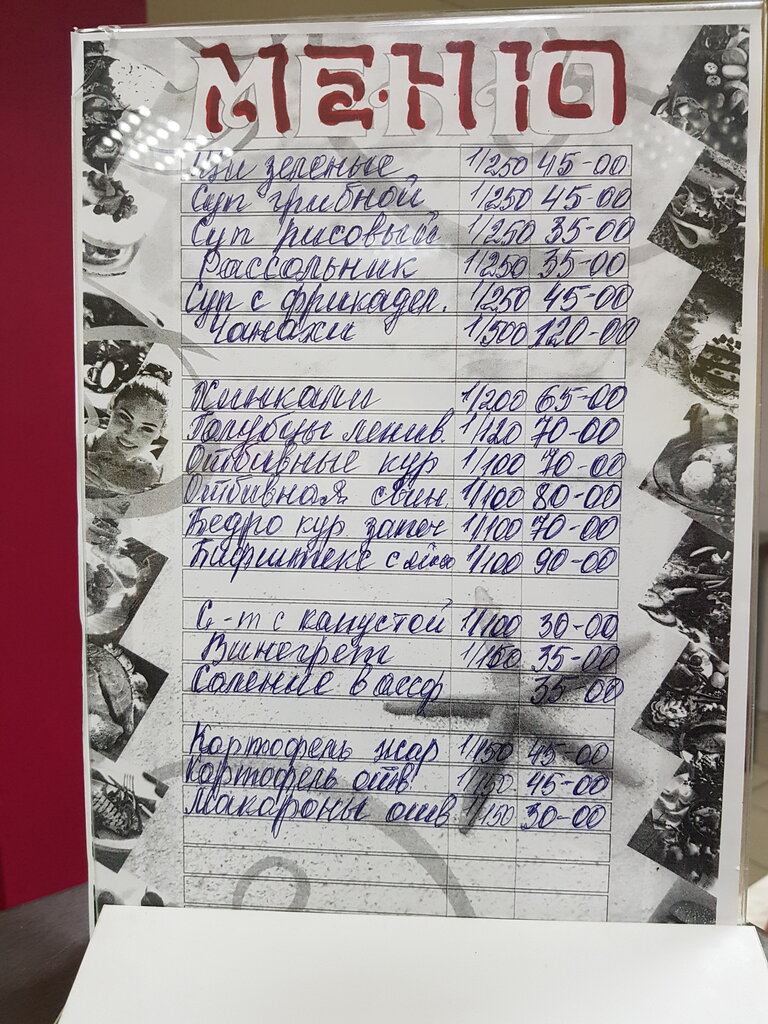 МЕНЮ
Щи зеленые 1/250 45-00
Суп грибной 1/250 45-00
Суп рисовый 1/250 35-00
Рассольник 1/250 35-00
Суп с фрикадел. 1/250 45-00
Чанахи 1/500 120-00
Хинкали 1/200 65-00
Голубцы ленив. 1/120 70-00
Отбивные кур 1/100 70-00
Отбивная свин 1/100 80-00
Бедро кур запеч 1/100 70-00
Бифштекс с 1/100 90-00
С-т с капустой 1/100 30-00
Винегрет 1/150 35-00
Соление в асср 35-00
Картофель жар 1/150 45-00
Картофель отв 1/150 45-00
Макароны отв 1/150 30-00